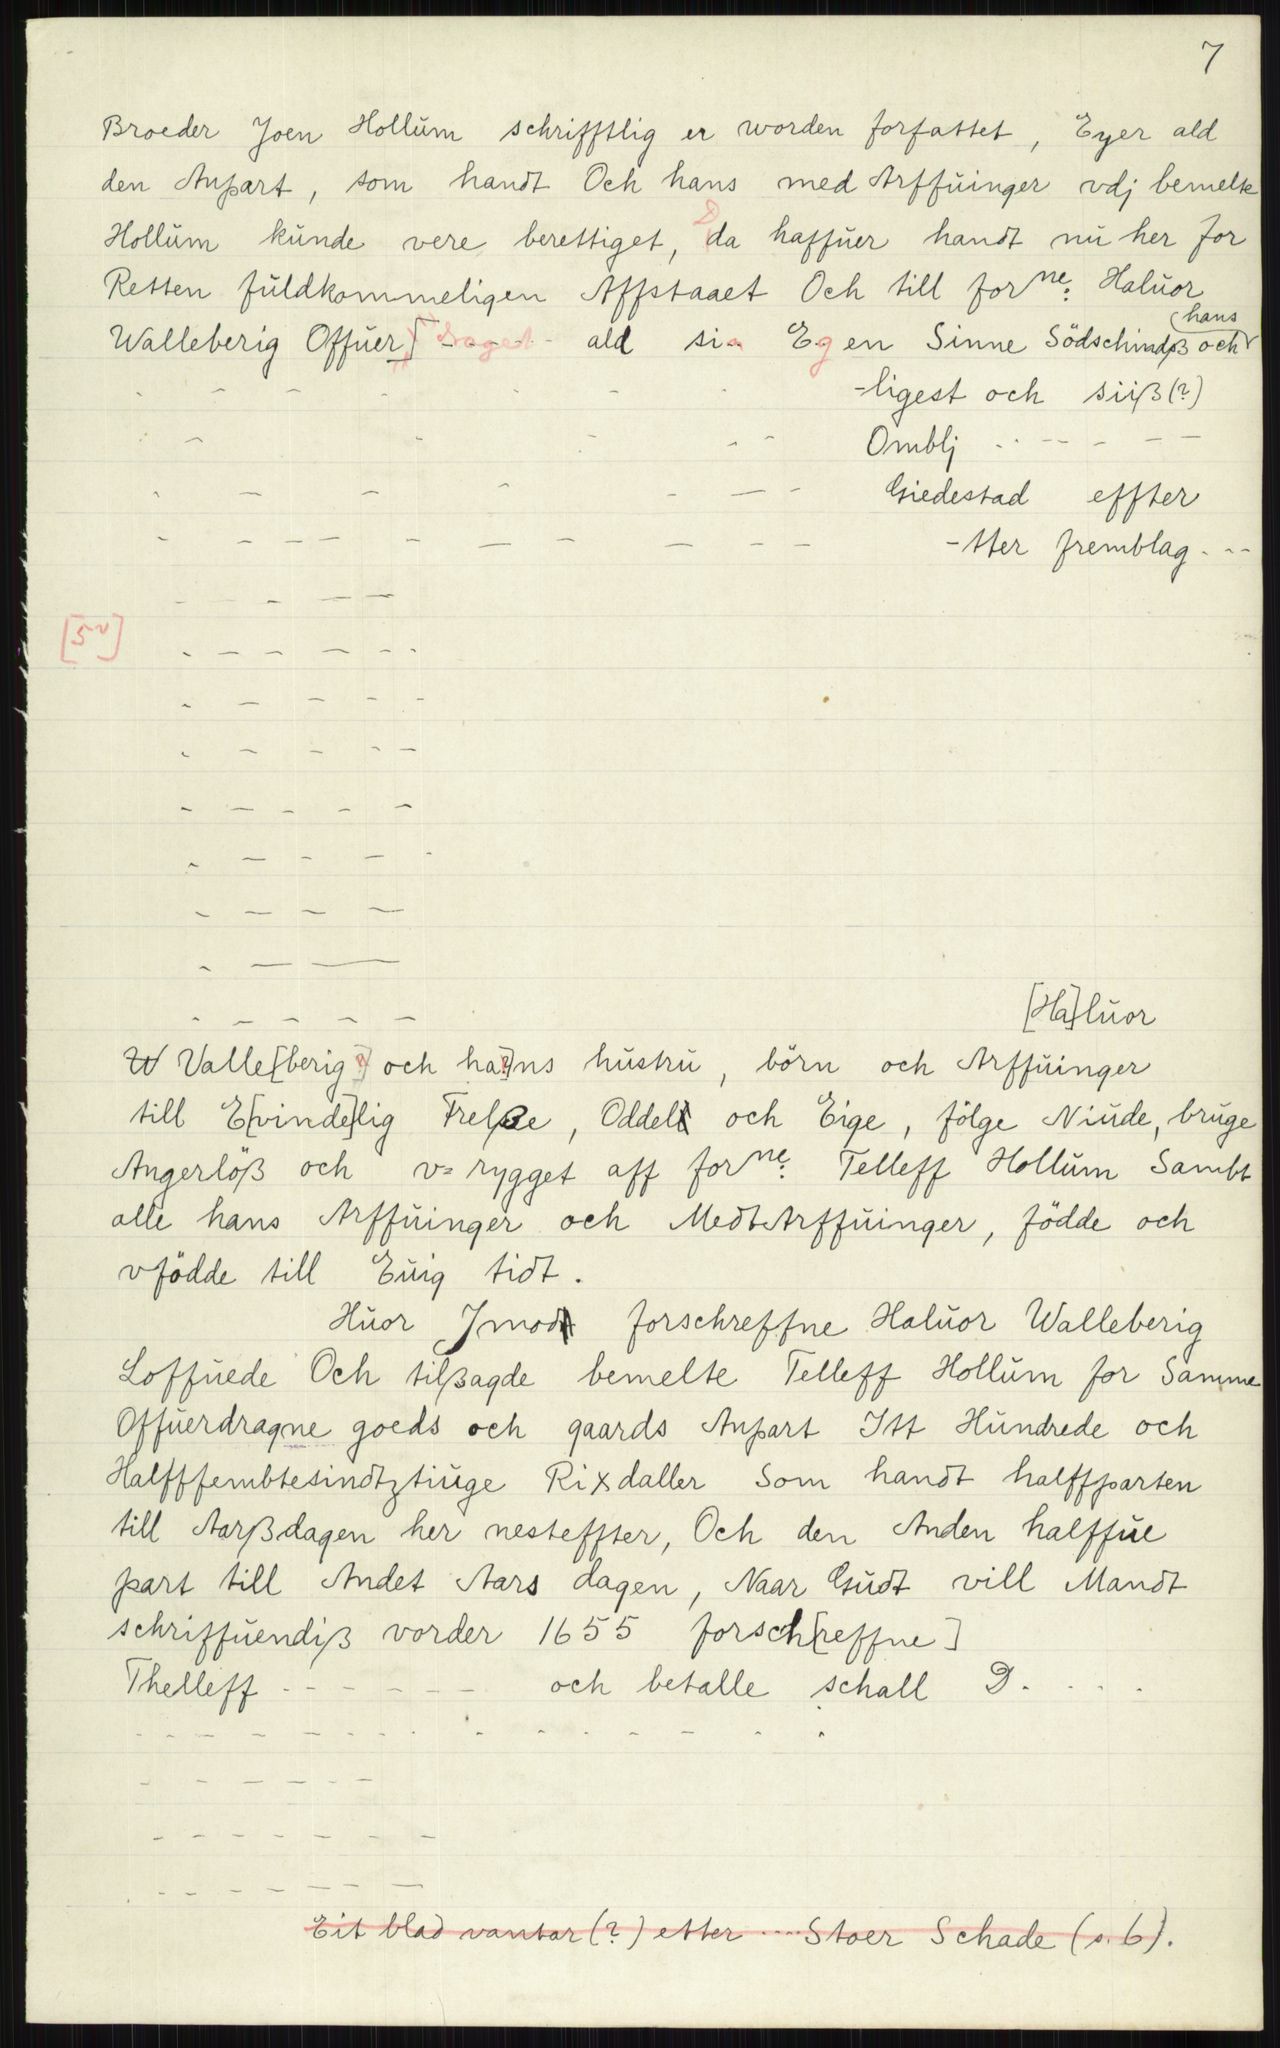 7
Broeder Joen Hollům schrifftlig er worden forfattet, Eyer ald
den Anpart, som handt Och hans med Arffůinger vdj bemelte
Hollům kůnde vere berettiget, da haffůer handt nů her for
Retten fůldkommeligen Affstaaet Och till forne: Halůor
hans
Walleberig Offůer[draget ald sin Egen Sinne Södschindß och
-ligest och siiß(?)
Omblj - - - - - -
Giedestad effter
- - - - - - - - - -tter fremblag - - -
- - - - -
[5v]
- - - - - -
- - - - -
- - - - -
- - - - -
- - - - -
- - - -
- - -
[Ha]lůor
- - - - -
Valle[berig?] och ha?]ns hůstrů, börn och Arffůinger
till E[vinde]lig Frelße, Oddel och Eige, fölge Niůde, brůge
Angerlöß och v= rygget aff forne: Telleff Hollům Sambt
alle hans Arffůinger och MedtArffůinger, födde och
vfödde till Eůig tidt.
Hůor Jmod forschreffne Halůor Walleberig
Loffůede Och tilßagde bemelte Telleff Hollům for Samme
Offůerdragne goeds och gaards Anpart Itt Hůndrede och
Halfffembtesindtztiůge Rixdaller Som handt halffparten
till Aarßdagen her nesteffter, Och den Anden halffůe
part till Andet Aars dagen, Naar Gůdt vill Mandt
schriffůendiß vorder 1655 forsch[reffne]
Thelleff - - - - - - och betalle schall D. . . .
- - - - - - - - - - - - -
- - - - - -
- - - - - - -
- - - - - - -
Eit blad vantar (?) etter .... Stoer Schade (s. 6).